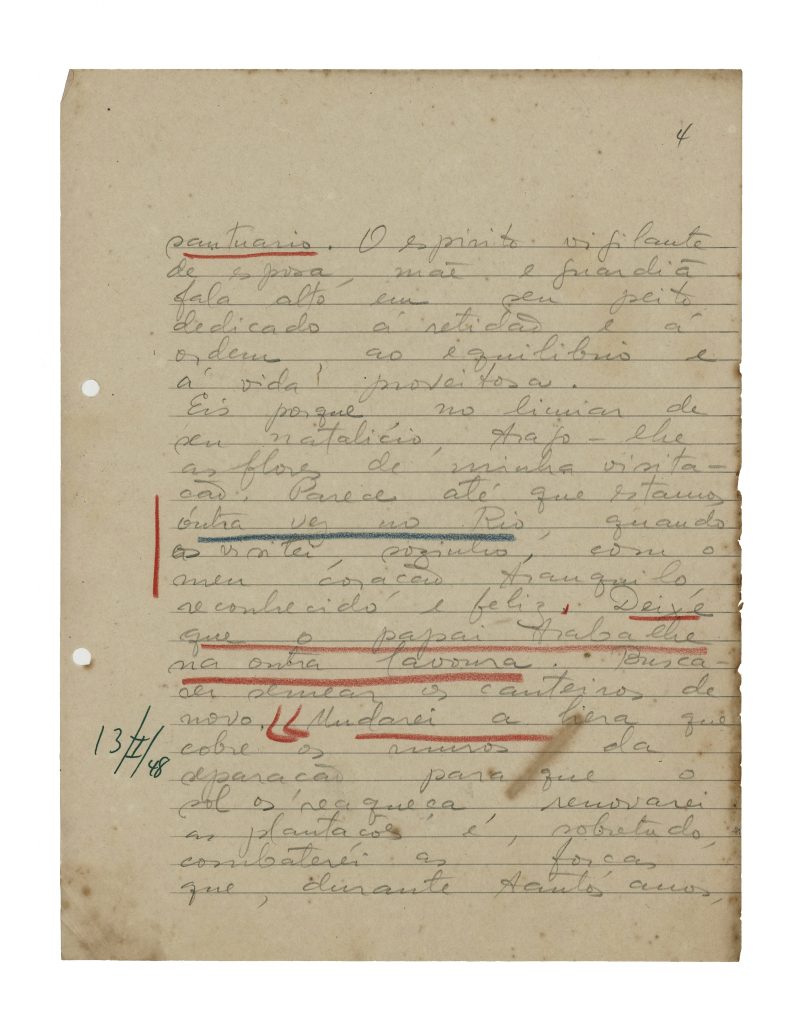 4
santuario. O espirito vigilante
de esposa, mãe e guardiã
fala alto em seu peito
dedicado á retidão e á
ordem ao equilibrio e
á vida proveitosa.
Eis porque no limiar de
seu natalício, trago-lhe
as flores de minha visita-
ção. Parece até que estamos
outra vez no Rio, quando
os visitei, sozinho, com o
meu coração tranquilo
reconhecido e feliz. Deixe
que o papai trabalhe
na outra lavoura. Busca-
rei semear os canteiros de
novo. Mudarei a hera que
cobre os muros da
separação para que o
sol os reaqueça renovarei
as plantações e, sobretudo,
combaterei as forças
que, durante tantos anos,
13/I/48